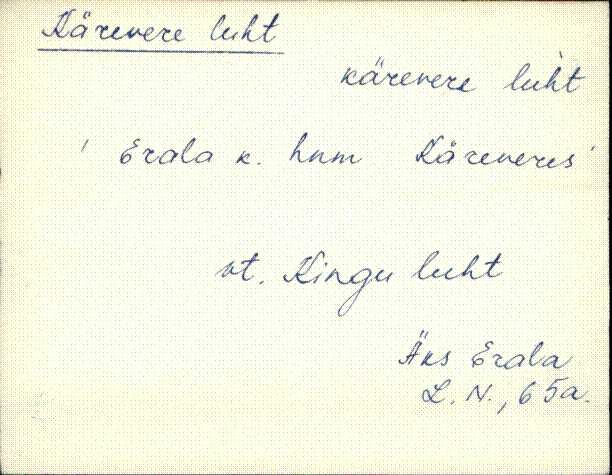 Kärevere luht
kärevere luh̀t
' Erala k. hnm Käreveres'
vt. Kingu luht
Äks Erala
L. N., 65a.